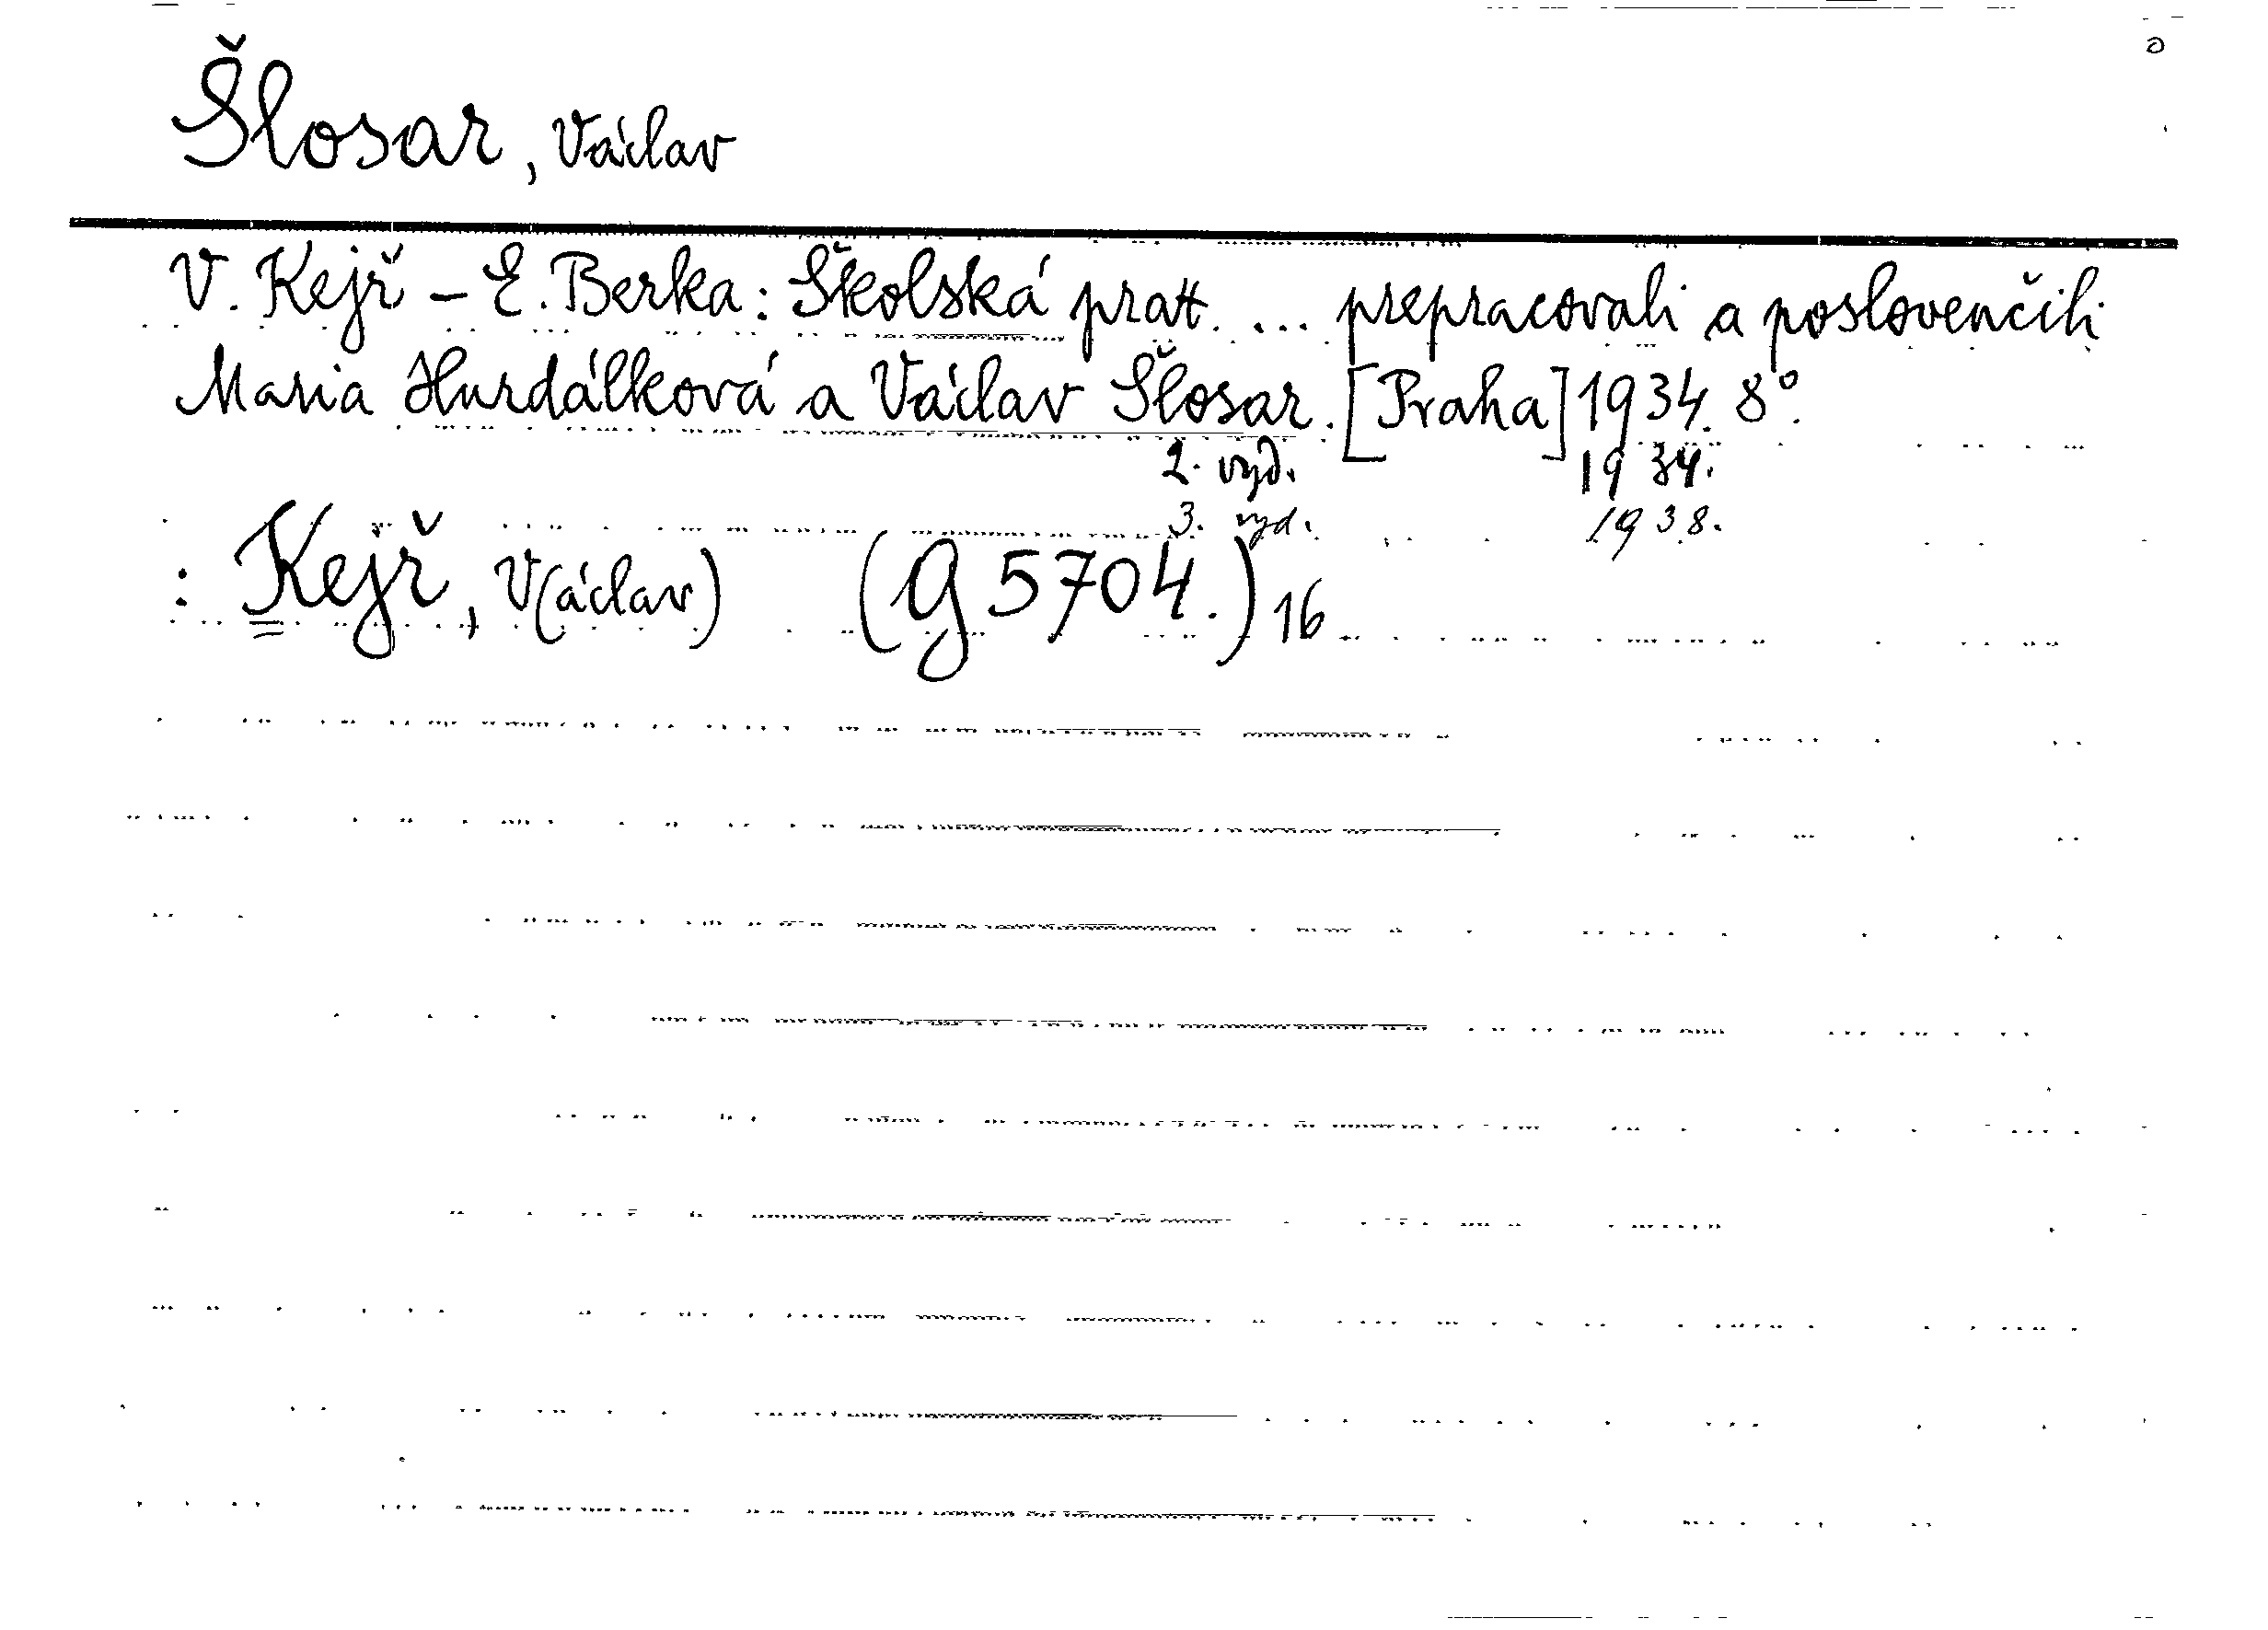 Šlosar, Václav
V. Kejř – E. Berka: Školská pratt. ... prepracovali a poslovenčili
Maria Hurdálková a Václav Šlosar. [Praha] 1934. 8°.
2. vyd. 1934.
3. vyd. 1938.
: Kejř, V(áclav) (G 5704.) 16